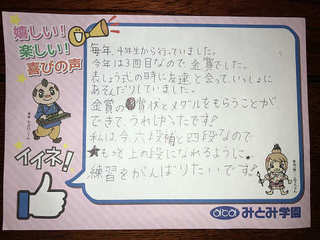 嬉しい!
楽しい!
喜びの声
毎年、4年生から行っていました。
今年は3回目なので金賞でした。
表しょう式の時に友達と会っていっしょに
あそんだりしていました。
金賞の賞状とメダルをもらうことが
できて、うれしかったです!
私は今六段補と四段なので
★も上の段になれるように
練習をがんばりたいです!
イイネ!
みとみ学園